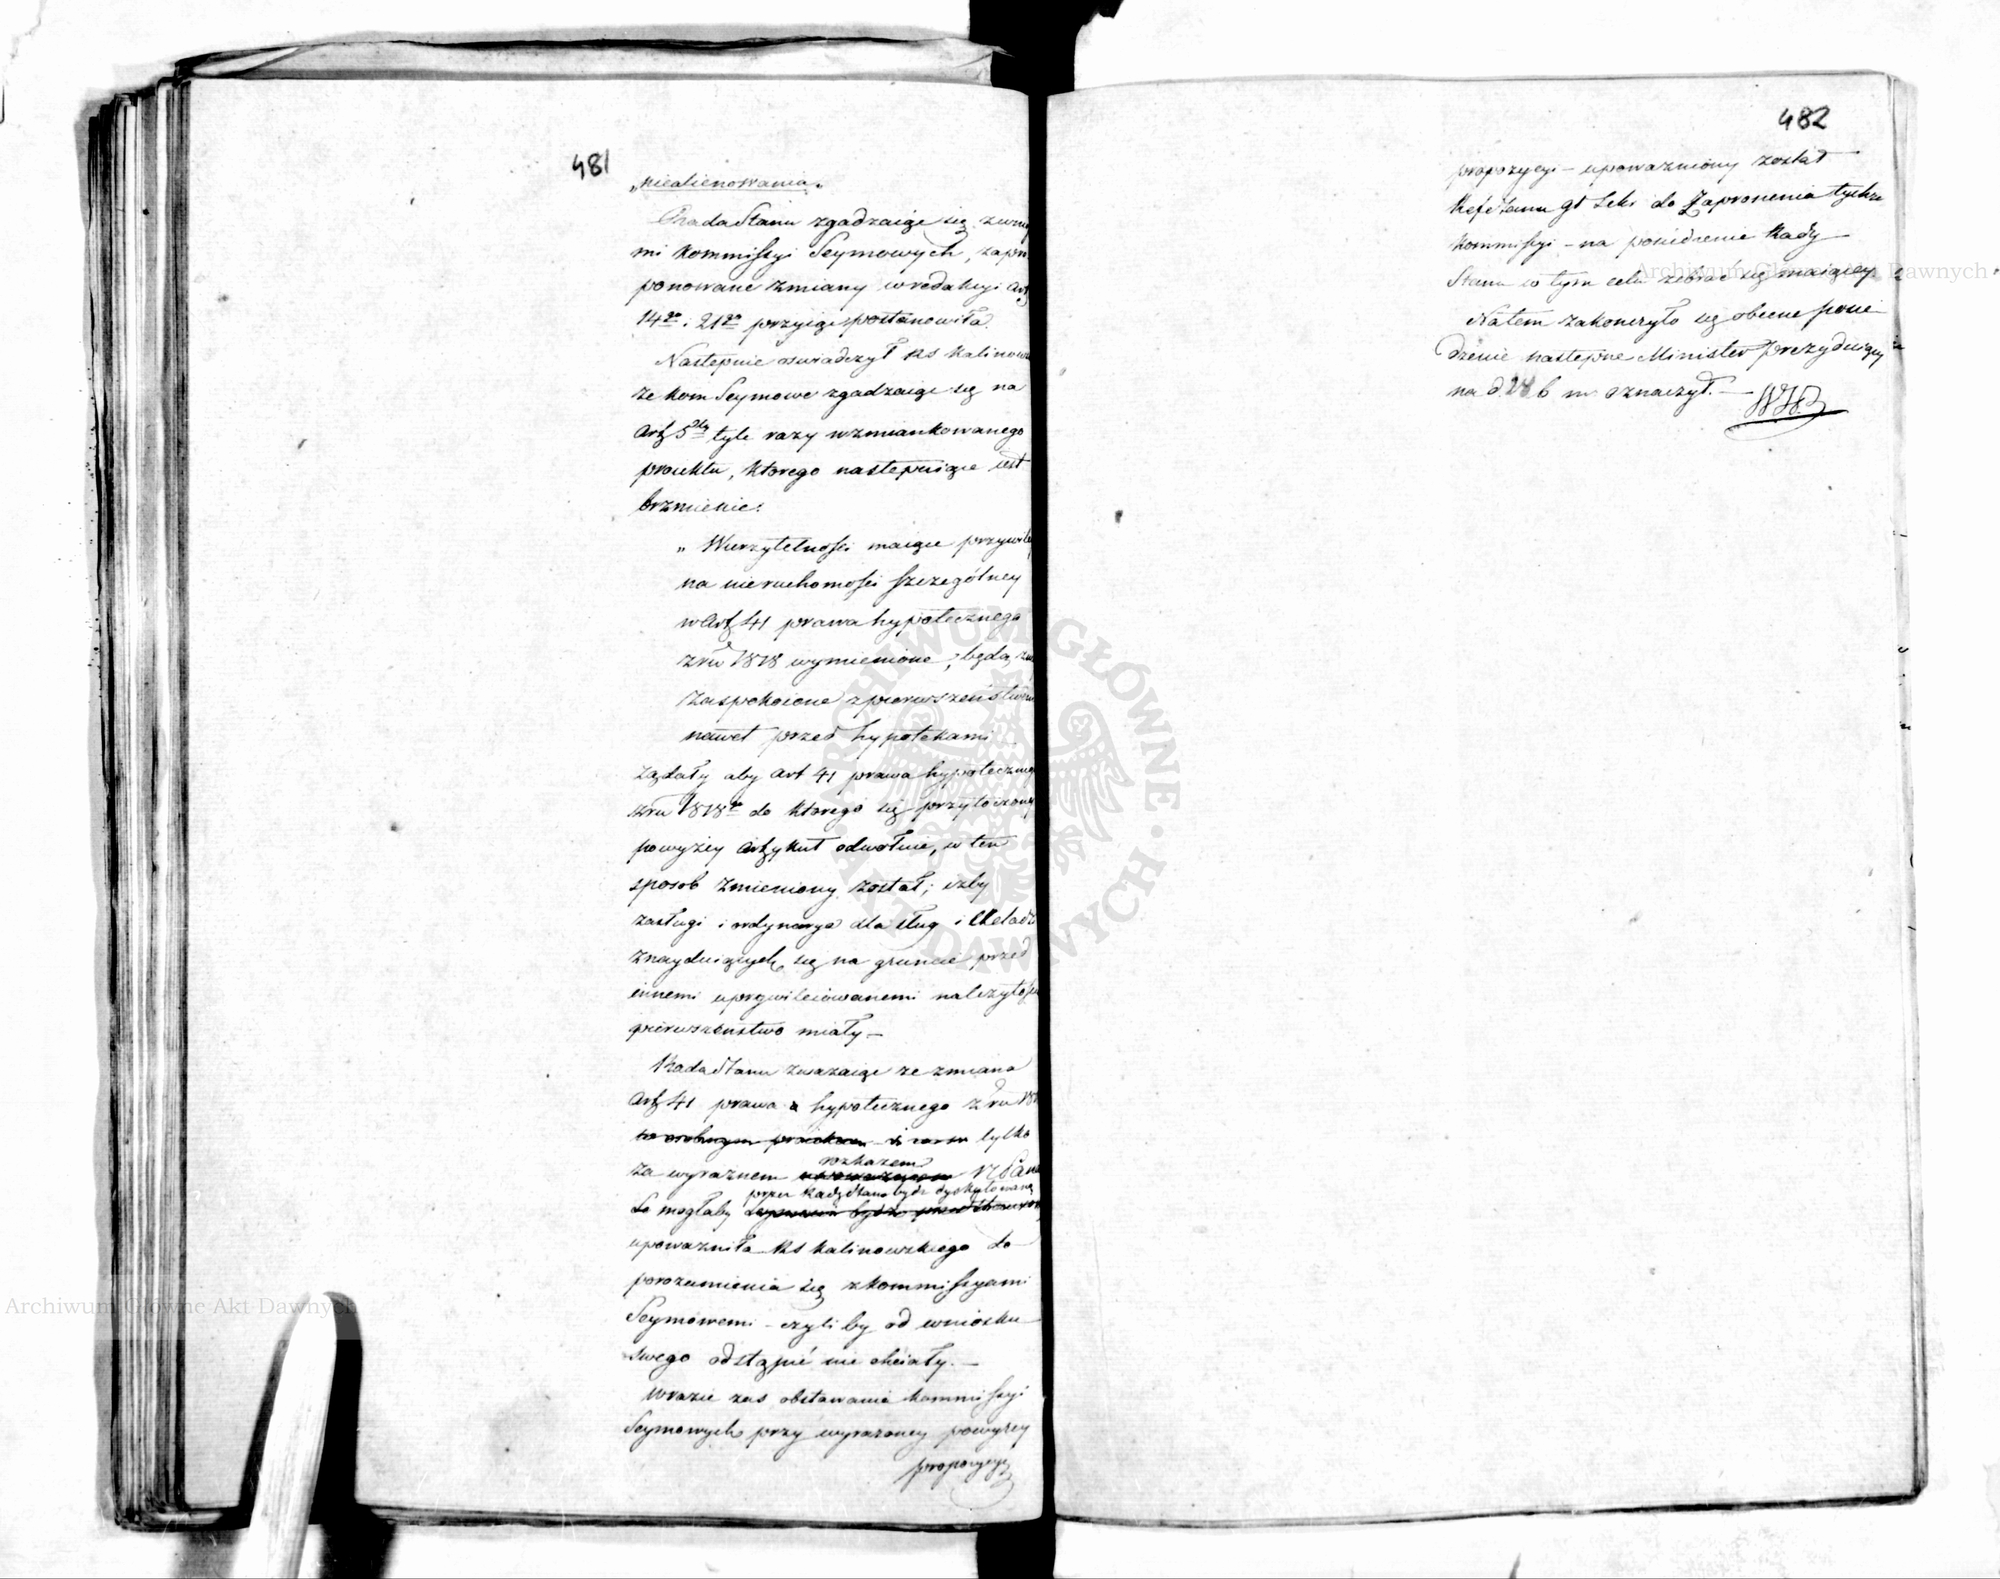 481
„niealienowania„
Rada Stanu zgadzaiąc się z uwag
mi Kommissyi Seymowych, zapro
ponowane zmiany w redakcyi Art
14go i 21go przyiąć postanowiła.
Następnie oswiadczył RS Kalinow
że Kom Seymowe zgadzaiąc się na
Art 5ty tyle razy wzmiankowanego
proiektu, którego następuiące iest
brzmienie:
„ Wierzytelnosci maiące przywile
na nieruchomosci szczególney
w Art 41 prawa hypotecznego
z ru 1818 wymienione, będą
zaspokoione z pierwszenstwem
nawet przed hypotekami
żądały aby Art 41 prawa hypoteczneg
z ru 1818go do ktorego się przytoczony
powyżey Artykuł odwołuie, w ten
sposob zmieniony został; iżby
zasługi i ordynarya dla sług i Czeladzi
znayduiących się na gruncie przed
innemi uprzywileiowanemi należytosc
pierwszenstwo miały –
Rada Stanu zważaiąc że zmiana
Art 41 prawa hypotecznego z ru 181
tylko
rozkazem
za wyraznem N Pana
przez Radę Stanu bydz dyskutowaną
mogłaby
upoważniła RS Kalinowskiego do
porozumienia się z Kommissyami
Seymowemi – czyli by od wniosku
swego odstąpić nie chciały. –
W razie zas obstawania Kommissyi
Seymowych przy wyrażoney powyżey
propozycyi
482
propozycyi – upoważniony został
Ref Stanu gł Sekr do Zaproszenia tychże
Kommissyi – na posiedzenie Rady
Stanu w tym celu zebrać się maiącey
Na tem zakończyło się obecne posie
dzenie następne Minister prezyduiący
na d. 28 b m oznaczył. –
Archiwum Główne Akt Dawnych
Archiwum Główne Akt Dawnych
ARCHIWUM GŁÓWNE AKT DAWNYCH